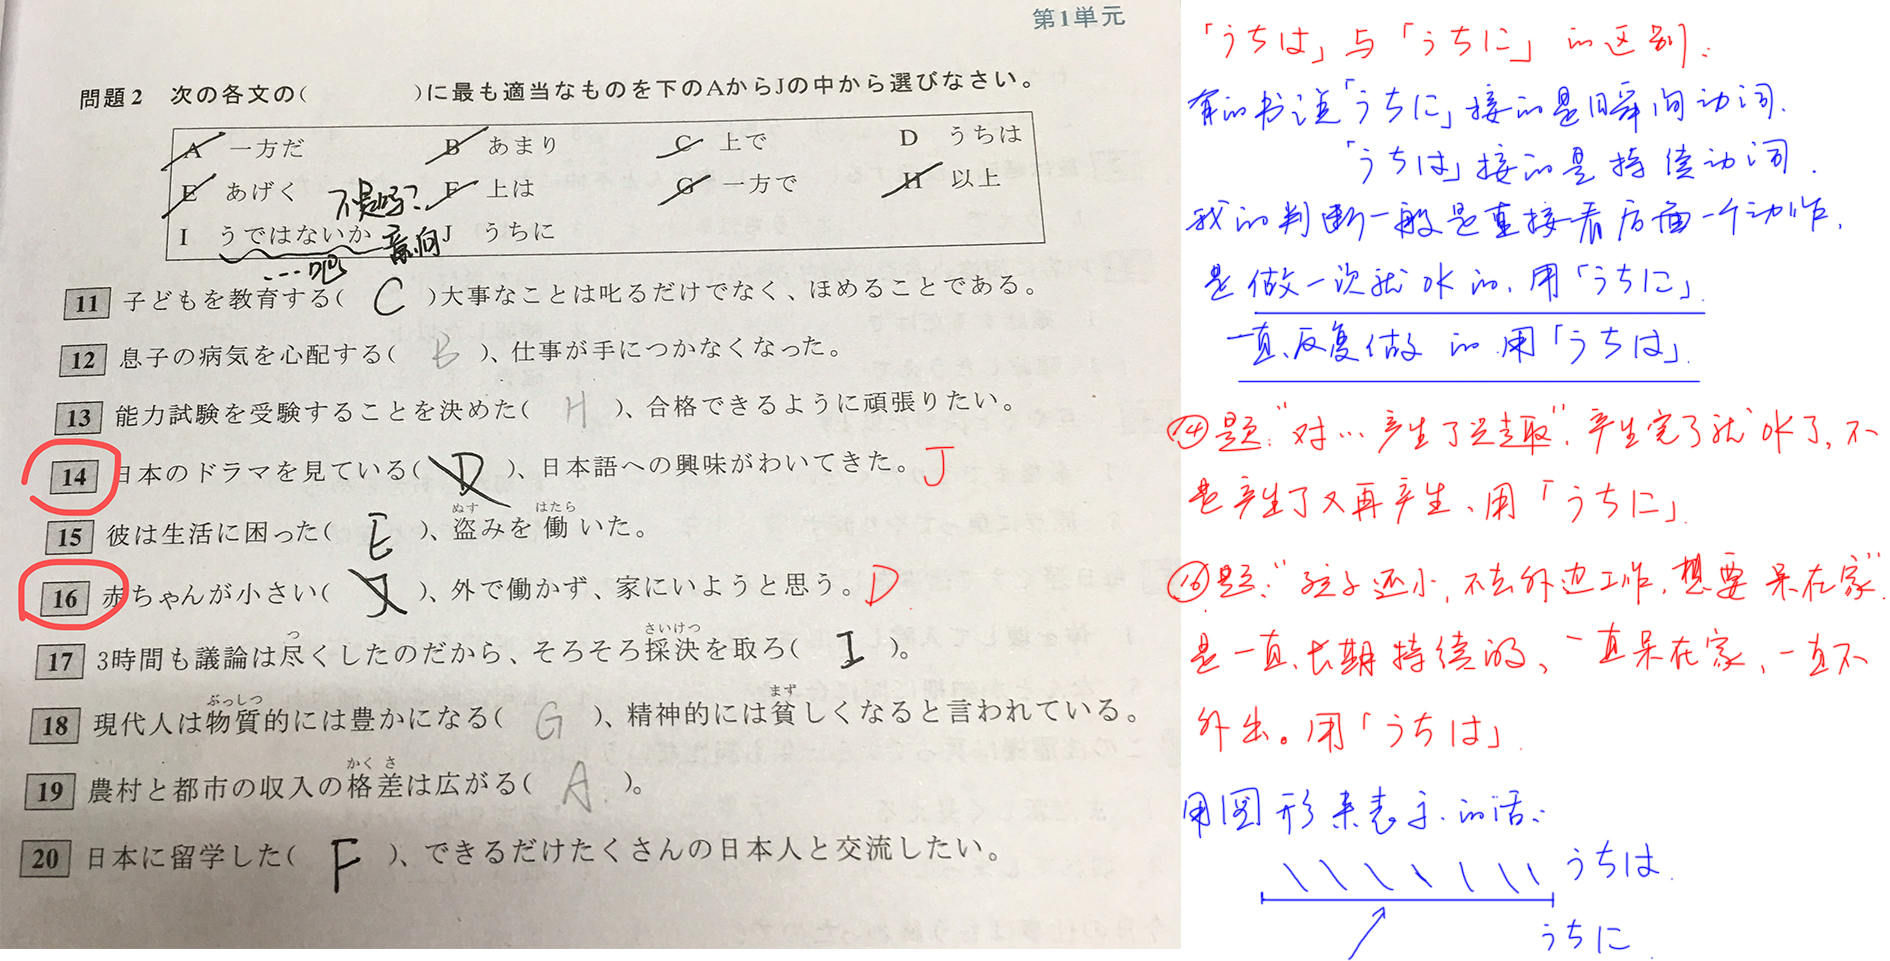 第1単元
問題2 次の各文の( )に最も適当なものを下のAからJの中から選びなさい。
A 一方だ B あまり C 上で D うちは
E あげく 不是吗? F 上は G 一方で H 以上
I うではないか 意向 J うちに
…吧
11 子どもを教育する( C )大事なことは叱るだけでなく、ほめることである。
12 息子の病気を心配する( B )、仕事が手につかなくなった。
13 能力試験を受験することを決めた( H )、合格できるように頑張りたい。
14 日本のドラマを見ている( D )、日本語への興味がわいてきた。 J
ぬす はたら
15 彼は生活に困った( E )、盗みを働いた。
16 赤ちゃんが小さい( J )、外で働かず、家にいようと思う。 D
つ さいけつ
17 3時間も議論は尽くしたのだから、そろそろ採決を取ろ( I )。
ぶっしつ まず
18 現代人は物質的には豊かになる( G )、精神的には貧しくなると言われている。
かくさ
19 農村と都市の収入の格差は広がる( A )。
20 日本に留学した( F )、できるだけたくさんの日本人と交流したい。
「うちは」与「うちに」的区别:
有的书说「うちに」接的是瞬间动词.
「うちは」接的是持续动词.
我的判断一般是直接看后面一个动作.
是做一次就ok的、用「うちに」.
一直、反复做的.用「うちは」.
⑭题:"对…产生了兴趣".产生完了就ok了,不
是产生了又再产生、用「うちに」.
⑯题:"孩子还小,不去外边工作,想要呆在家"
是一直、长期持续的、一直呆在家、一直不
外出。用「うちは」.
用图形来表示的话:
うちは.
うちに.